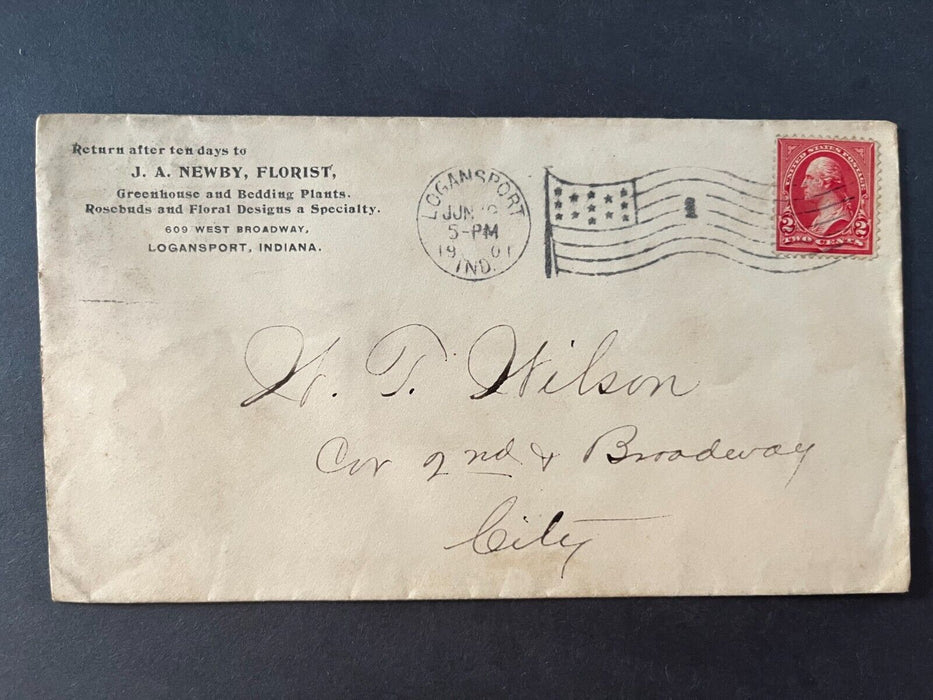 Return after ten days to
J. A. NEWBY, FLORIST,
Greenhouse and Bedding Plants.
Rosebuds and Floral Designs a Specialty.
609 WEST BROADWAY,
LOGANSPORT, INDIANA.
LOGANSPORT
JUN
5-PM
19 01
IND.
1
UNITED STATES POSTAGE
2 2
TWO CENTS
W. T. Wilson
Cor 2nd & Broadway
City